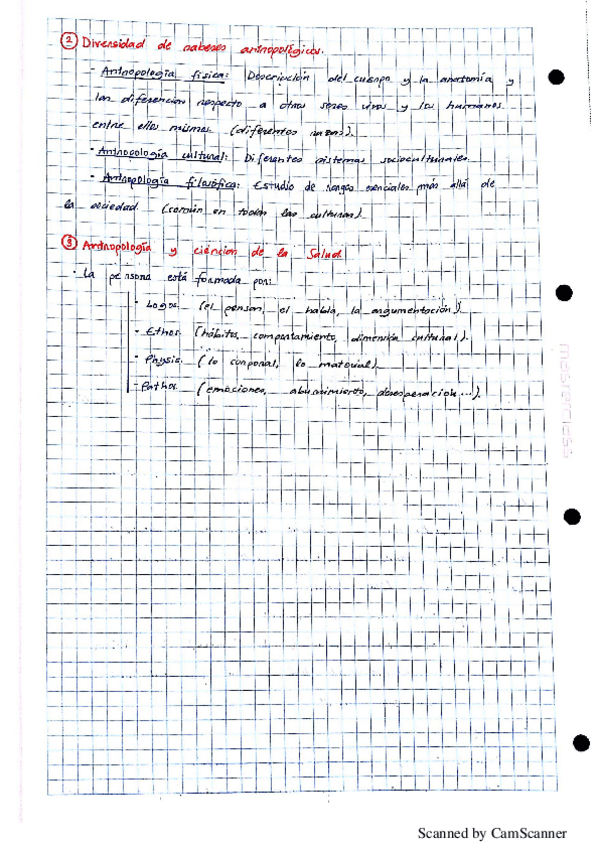 ② Diversidad de saberes antropológicos.
- Antropología física: Descripción del cuerpo y la anatomía, y
las diferencias respecto a otros seres vivos y los humanos
entre ellos mismos (diferentes razas).
- Antropología cultural: Diferentes sistemas socioculturales.
- Antropología filosófica: Estudio de rasgos esenciales más allá de
la sociedad (común en todas las culturas).
③ Antropología y ciencias de la Salud
- La persona está formada por:
- Logos (el pensar, el habla, la argumentación).
- Ethos (hábitos, comportamiento, dimensión cultural).
- Physis (lo corporal, lo material).
- Pathos (emociones, aburrimiento, desesperación...).
Scanned by CamScanner